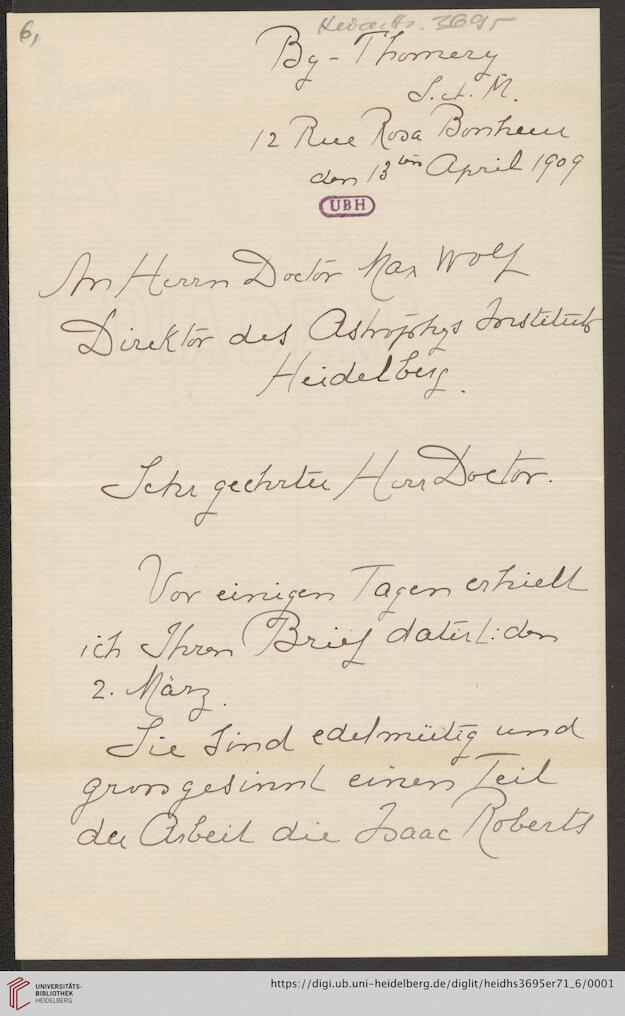 6,
Heid. Hs. 3695
By - Thomery
S. et. M.
12 Rue Rosa Bonheur
den 13ten April 1909
UBH
An Herrn Doctor Max Wolf
Direktor des Astrophys Instituts
Heidelberg.
Sehr geehrter Herr Doctor.
Vor einigen Tagen erhielt
ich Ihren Brief datirt: den
2. März.
Sie sind edelmütig und
grossgesinnt einen Teil
der Arbeit die Isaac Roberts
UNIVERSITÄTS-
BIBLIOTHEK
HEIDELBERG
https://digi.ub.uni-heidelberg.de/diglit/heidhs3695er71_6/0001